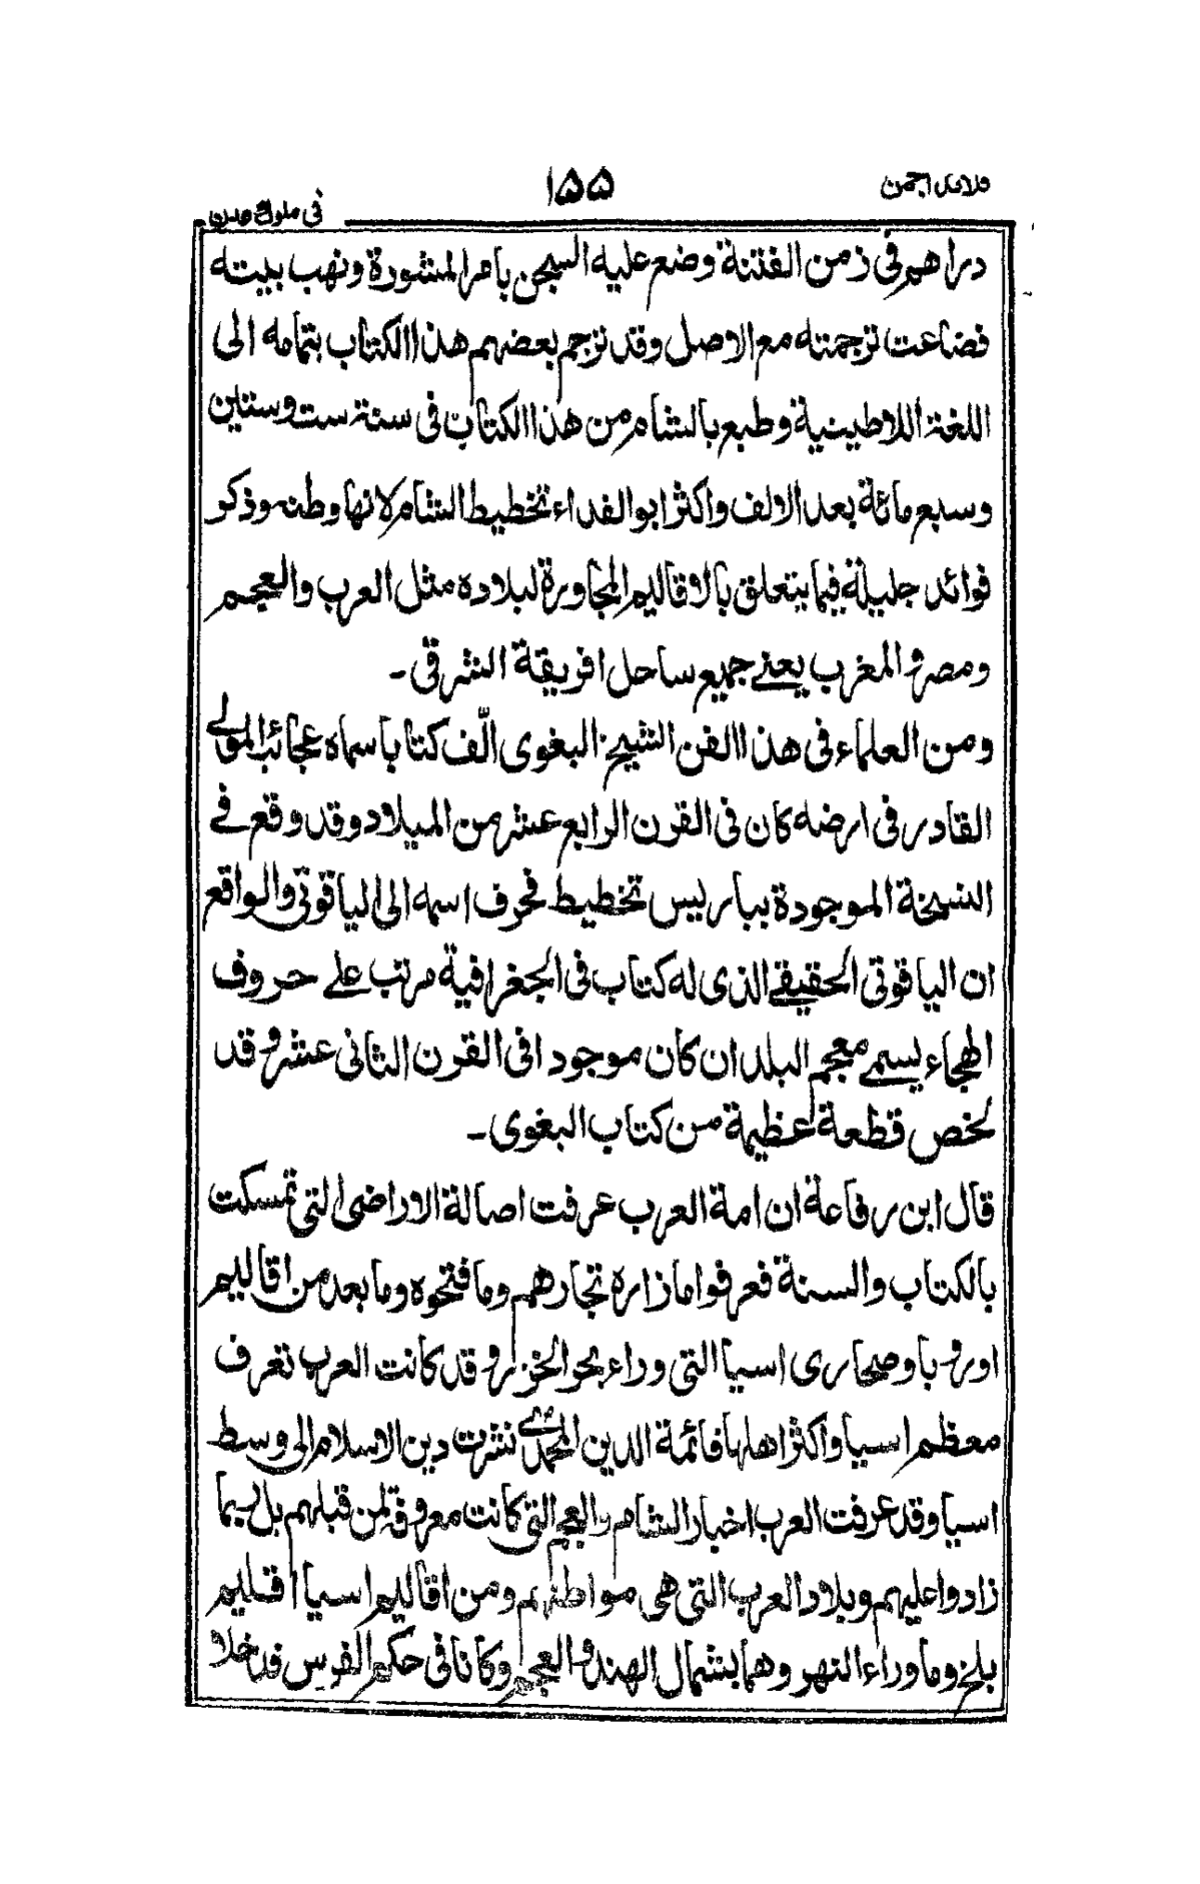 قلائد الجمن
١٥٥
فى ملوك عدن
دراهم فى زمن الفتنة وضع عليه السجن بامر المشورة ونهب بيته
فضاعت ترجمته مع الاصل وقد ترجم بعضهم هذا الكتاب بتمامه الى
اللغة اللاطينية وطبع بالشام من هذا الكتاب فى سنة ست وستين
وسبع مائة بعد الالف واكثر ابوالفداء تخطيط الشام لانها وطنه وذكر
فوائد جليلة فيما يتعلق بالاقاليم المجاورة لبلاده مثل العرب والعجم
ومصر والمغرب يعنے جميع ساحل افريقة الشرقى ۔
ومن العلماء فى هذا الفن الشيخ البغوى الّف كتابا سماه عجائب المولے
القادر فى ارضه كان فى القرن الرابع عشر من الميلاد وقد وقع فے
النسخة الموجودة بباريس تخطيط فحرف اسمه الى الياقوتى والواقع
ان الياقوتى الحقيقے الذى له كتاب فى الجغرافية مرتب علے حروف
الهجاء يسمے معجم البلدان كان موجودا فى القرن الثانى عشر وقد
لخص قطعة عظيمة من كتاب البغوى ۔
قال ابن رفاعة ان امة العرب عرفت اصالة الاراضى التى تمسكت
بالكتاب والسنة فعرفوا ما زاره تجارهم وما فتحوه وما بعد من اقاليم
اوروبا وصحارى اسيا التى وراء بحر الخزر وقد كانت العرب تعرف
معظم اسيا واكثر اهلها فائمة الدين المحمدى نشرت دين الاسلام الى وسط
اسيا وقد عرفت العرب اخبار الشام والعجم التى كانت معروفة لمن قبلهم بل ربما
زادوا عليهم وبلاد العرب التى هى مواطنهم ومن اقاليم اسيا اقليم
بلخ وما وراء النهر وهما بشمال الهند والعجم وكانا فى حكم الفرس فدخلا